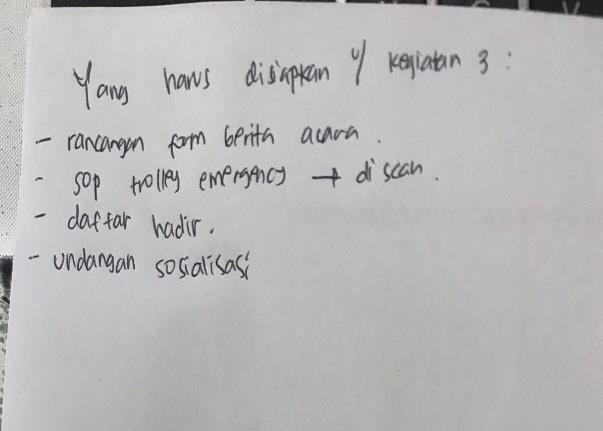 Yang harus disiapkan u/ kegiatan 3 :
- rancangan form berita acara.
- sop trolley emergency → di scan.
- daftar hadir.
- undangan sosialisasi